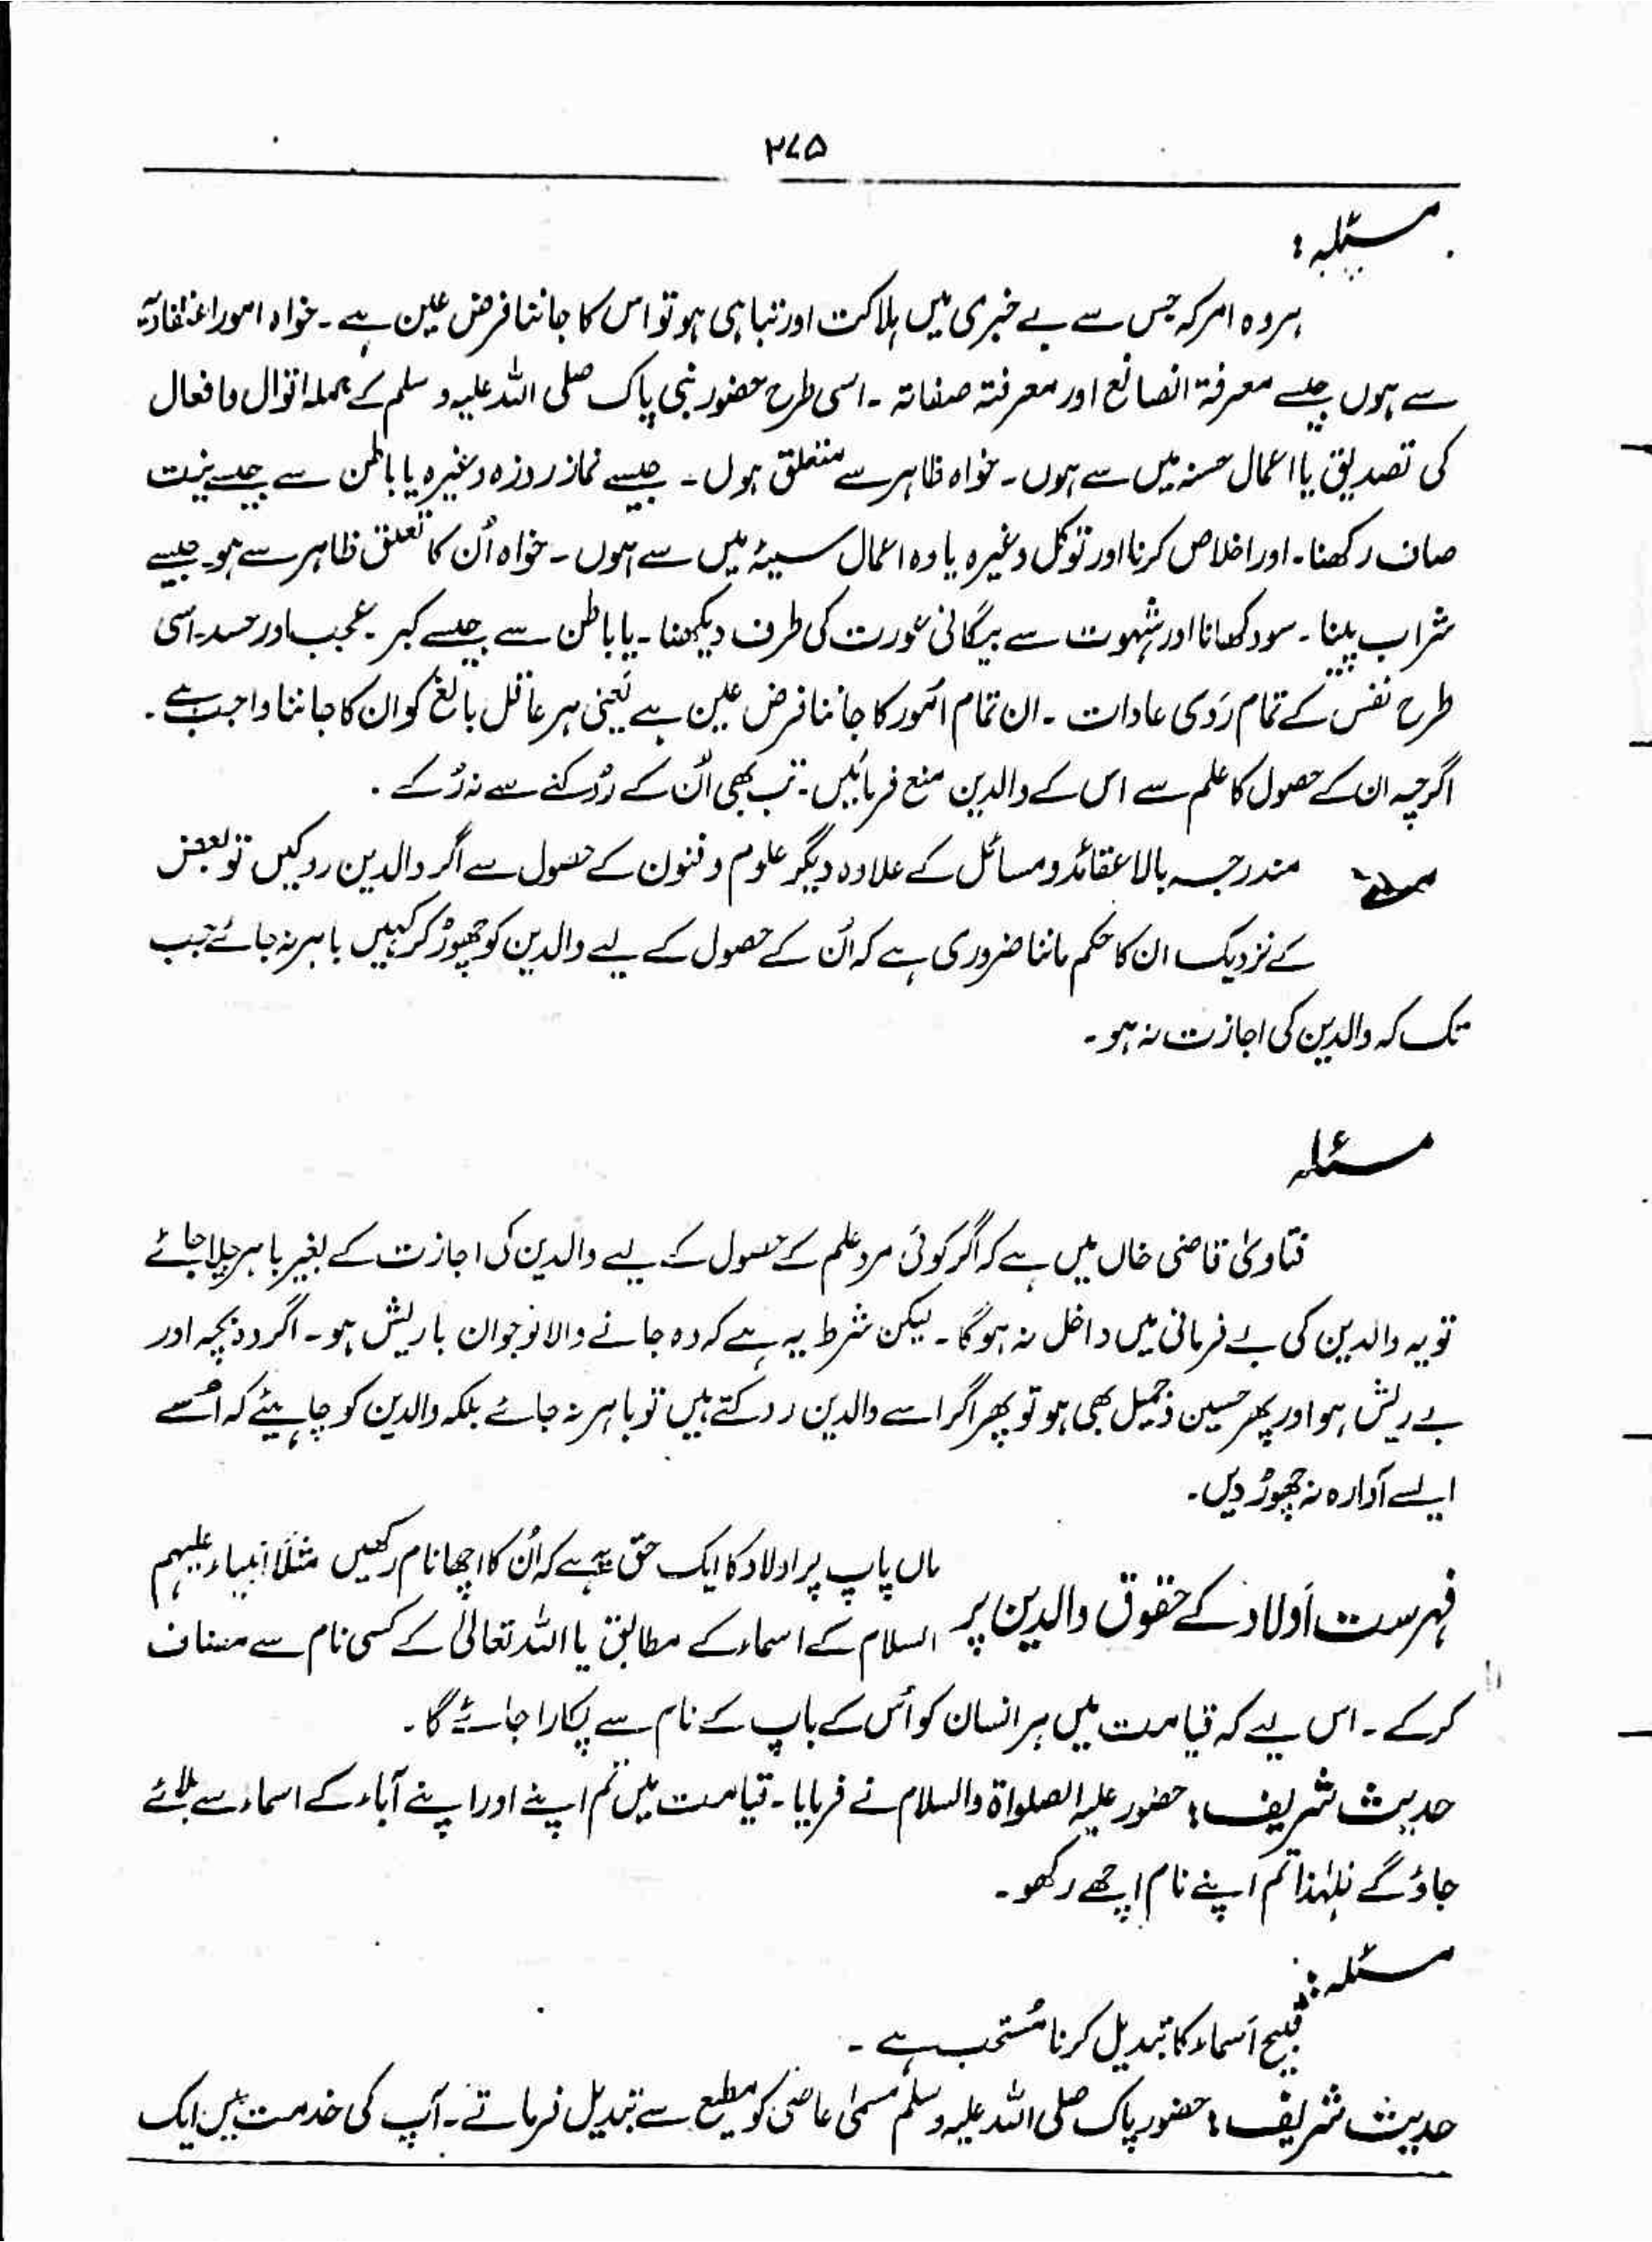 ۲۷۵
مسئلہ :
ہر وہ امر کہ جس سے بے خبری میں ہلاکت اور تباہی ہو تو اس کا جاننا فرض عین ہے ۔ خواہ امور اعتقادیہ
سے ہوں جیسے معرفۃ الصانع اور معرفتہ صفاتہ ۔ اسی طرح حضور نبی پاک صلی اللہ علیہ وسلم کے جملہ اقوال و افعال
کی تصدیق یا اعمال حسنہ میں سے ہوں ۔ خواہ ظاہر سے متعلق ہوں ۔ جیسے نماز روزہ وغیرہ یا باطن سے جیسے نیت
صاف رکھنا ۔ اور اخلاص کرنا اور توکل وغیرہ یا وہ اعمال سیئہ میں سے ہوں ۔ خواہ اُن کا تعلق ظاہر سے ہو جیسے
شراب پینا ۔ سود کھانا اور شہوت سے بیگانی عورت کی طرف دیکھنا ۔ یا باطن سے جیسے کبر ۔ عجب اور حسد ۔ اسی
طرح نفس کے تمام رَدی عادات ۔ ان تمام اُمور کا جاننا فرض عین ہے یَعنی ہر عاقل بالغ کو ان کا جاننا واجب ہے ۔
اگرچہ ان کے حصول کا علم سے اس کے والدین منع فرمائیں ۔ تب بھی اُن کے رُوکنے سے نہ رُکے ۔
مسئلہ مندرجہ بالا عقائد و مسائل کے علاوہ دیگر علوم و فنون کے حصول سے اگر والدین روکیں تو بعض
کے نزدیک ان کا حکم ماننا ضروری ہے کہ اُن کے حصول کے لیے والدین کو چھوڑ کر کہیں باہر نہ جائے جب
تک کہ والدین کی اجازت نہ ہو ۔
مسئلہ
فتاویٰ قاضی خاں میں ہے کہ اگر کوئی مرد علم کے حصول کے لیے والدین کی اجازت کے بغیر باہر چلا جائے
تو یہ والدین کی بے فرمانی میں داخل نہ ہوگا ۔ لیکن شرط یہ ہے کہ وہ جانے والا نوجوان باریش ہو ۔ اگر وہ بچہ اور
بے ریش ہو اور پھر حسین و جمیل بھی ہو تو پھر اگر اسے والدین روکتے ہیں تو باہر نہ جائے بلکہ والدین کو چاہیئے کہ اُسے
ایسے آوارہ نہ چھوڑ دیں ۔
فہرست اَولاد کے حقوق والدین پر
ماں پاپ پر اولاد کا ایک حق یہ ہے کہ اُن کا اچھا نام رکھیں مثلاً انبیاء علیہم
السلام کے اسماء کے مطابق یا اللہ تعالیٰ کے کسی نام سے مضاف
کر کے ۔ اس لیے کہ قیامت میں ہر انسان کو اُس کے باپ کے نام سے پکارا جائے گا ۔
حدیث شریف : حضور علیہ الصلواۃ والسلام نے فرمایا ۔ قیامت میں تم اپنے اور اپنے آباء کے اسماء سے بلائے
جاؤ گے فلہٰذا تم اپنے نام اچھے رکھو ۔
مسئلہ :
قبیح اَسماء کا تبدیل کرنا مُستحب ہے ۔
حدیث شریف : حضور پاک صلی اللہ علیہ وسلم مسمیٰ عاضی کو مطیع سے تبدیل فرماتے ۔ آپ کی خدمت میں ایک